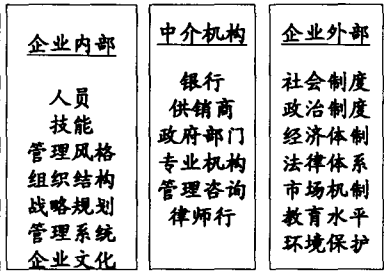 企业内部
人员
技能
管理风格
组织结构
战略规划
管理系统
企业文化
中介机构
银行
供销商
政府部门
专业机构
管理咨询
律师行
企业外部
社会制度
政治制度
经济体制
法律体系
市场机制
教育水平
环境保护